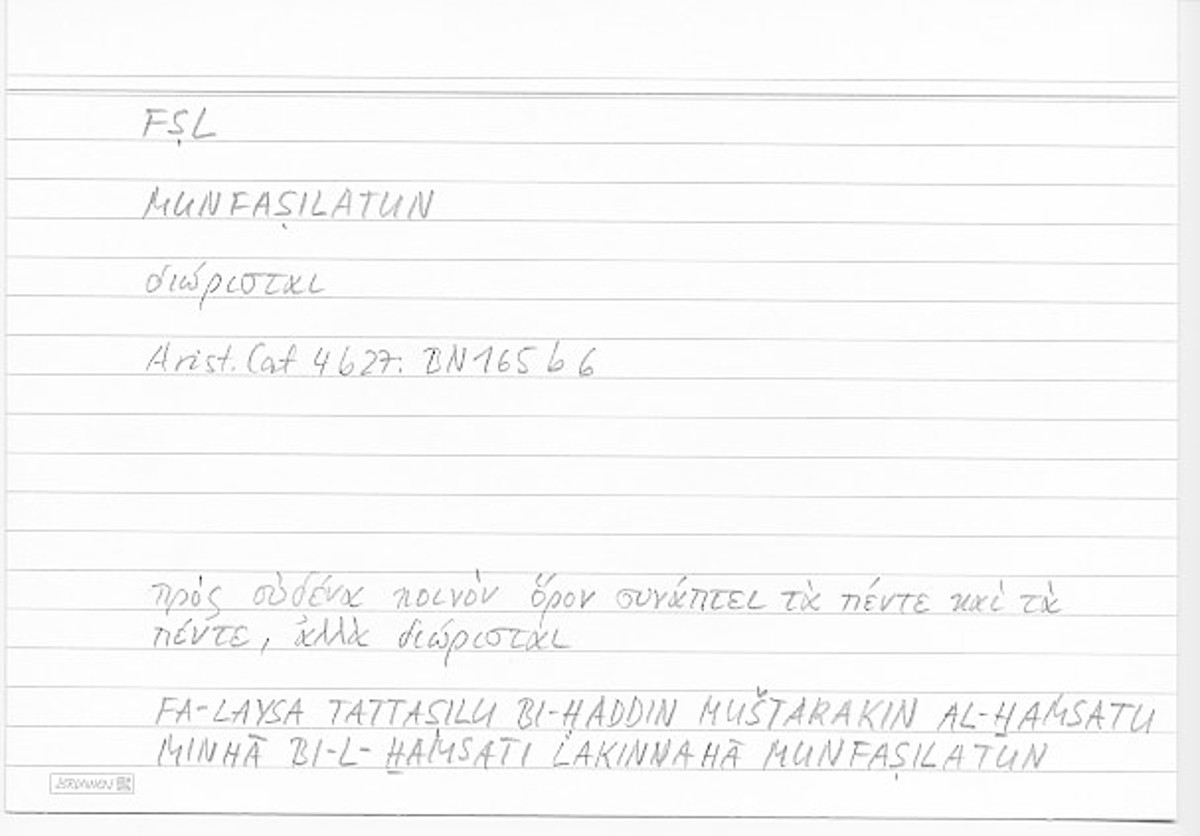 FṢL
MUNFAṢILATUN
διώρισται
Arist. Cat 4 b 27: BN 165 b 6
πρὸς οὐδένα κοινὸν ὅρον συνάπτει τὰ πέντε καὶ τὰ
πέντε, ἀλλὰ διώρισται
FA-LAYSA TATTAṢILU BI-ḤADDIN MUŠTARAKIN AL-ḪAMSATU
MINHĀ BI-L-ḪAMSATI LĀKINNAHĀ MUNFAṢILATUN
BRUNNEN